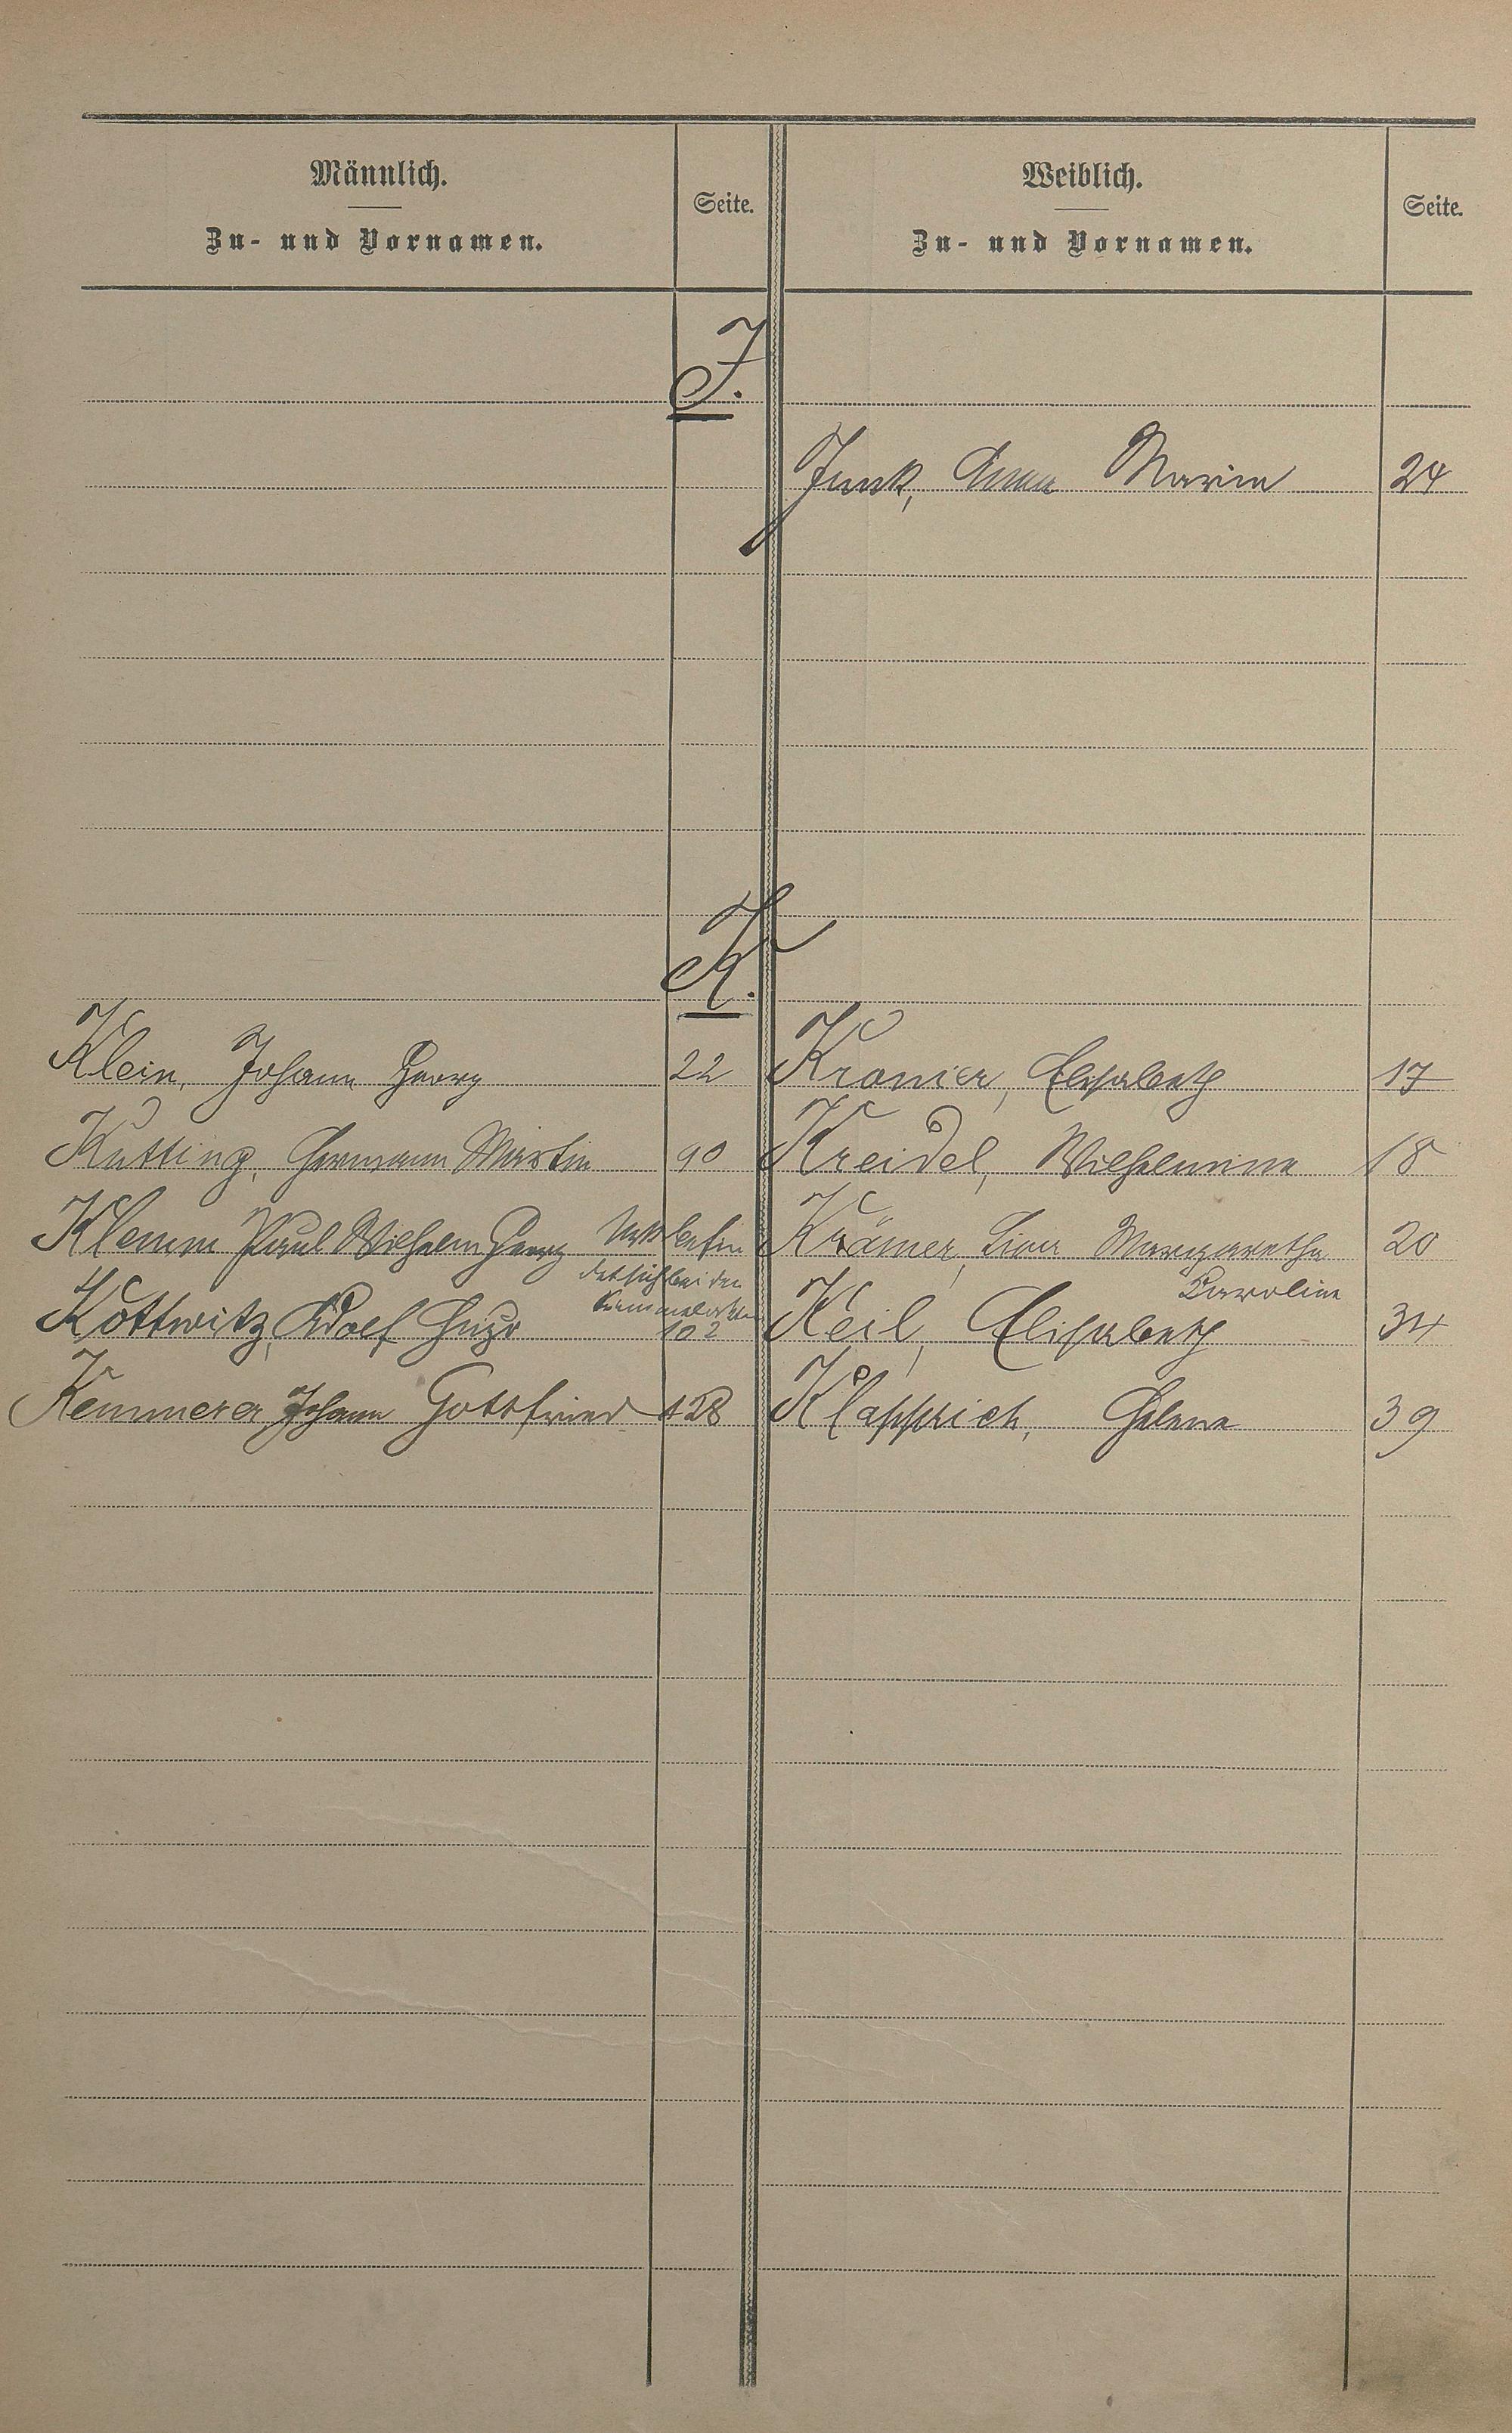 Männlich.
Zu- und Vornamen.
Seite.
Weiblich.
Zu- und Vornamen.
Seite.
J.
Junk, Anna Maria 24
K.
Klein, Johann Georg 22
Kromer, Elisabeth 17
Kutting, Hermann Martin 90
Kreidel, Wilhelmine 18
Klemm Paul Wilhelm Georg
befin
Krämer, Margaretha 20
det sich bei den
Karoline
Kottwitz, Adolf Hugo 102
Keil, Elisabeth 34
Kemmerer Johann Gottfried 128
Klapprich, Helene 39